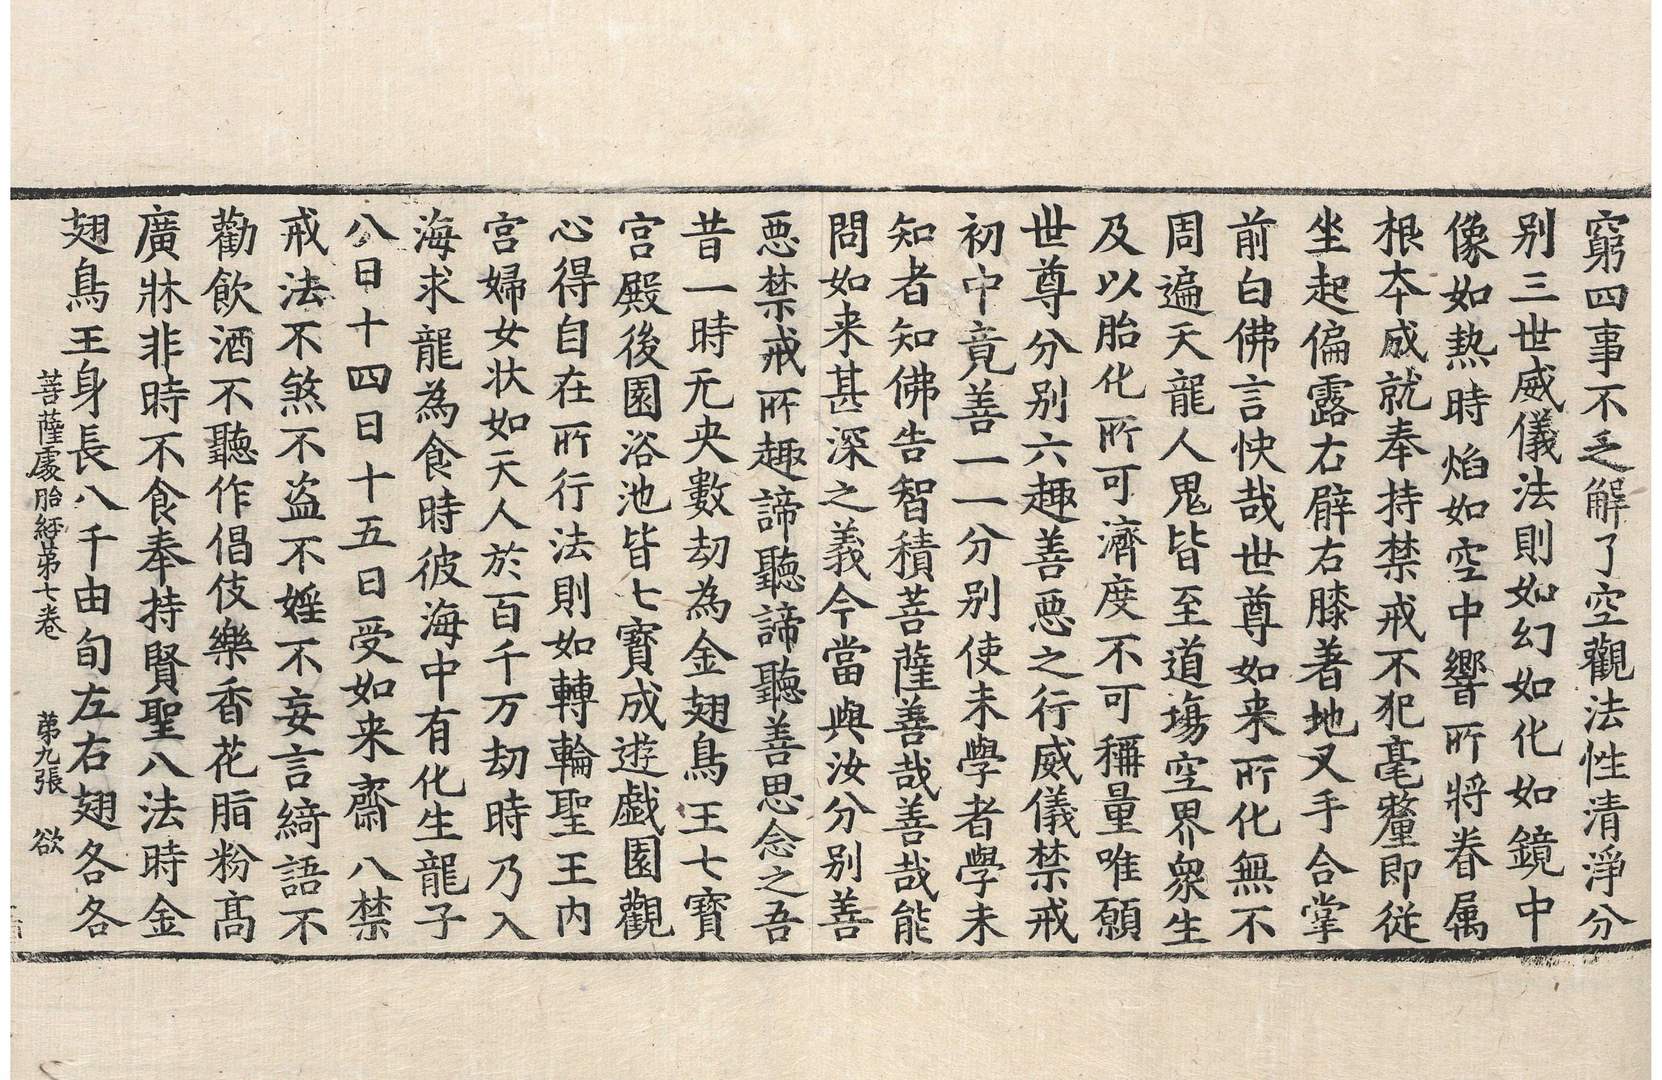 窮四事不乏解了空觀法性清淨分
别三世威儀法則如幻如化如鏡中
像如熱時焰如空中響所將眷属
根夲成就奉持禁戒不犯毫釐即從
坐起偏露右臂右膝著地叉手合掌
前白佛言快哉世尊如来所化無不
周遍天龍人鬼皆至道場空界衆生
及以胎化所可濟度不可稱量唯願
世尊分别六趣善惡之行威儀禁戒
初中竟善一一分别使未學者學未
知者知佛告智積菩薩善哉善哉能
問如来甚深之義今當與汝分别善
惡禁戒所趣諦聽諦聽善思念之吾
昔一時无央數劫為金翅鳥王七寶
宮殿後園浴池皆七寶成遊戯園觀
心得自在所行法則如轉輪聖王内
宮婦女状如天人於百千万劫時乃入
海求龍為食時彼海中有化生龍子
八日十四日十五日受如来齋八禁
戒法不煞不盗不婬不妄言綺語不
勸飲酒不聽作倡伎樂香花脂粉髙
廣牀非時不食奉持賢聖八法時金
翅鳥王身長八千由旬左右翅各各
菩薩處胎經苐七卷 苐九張 欲